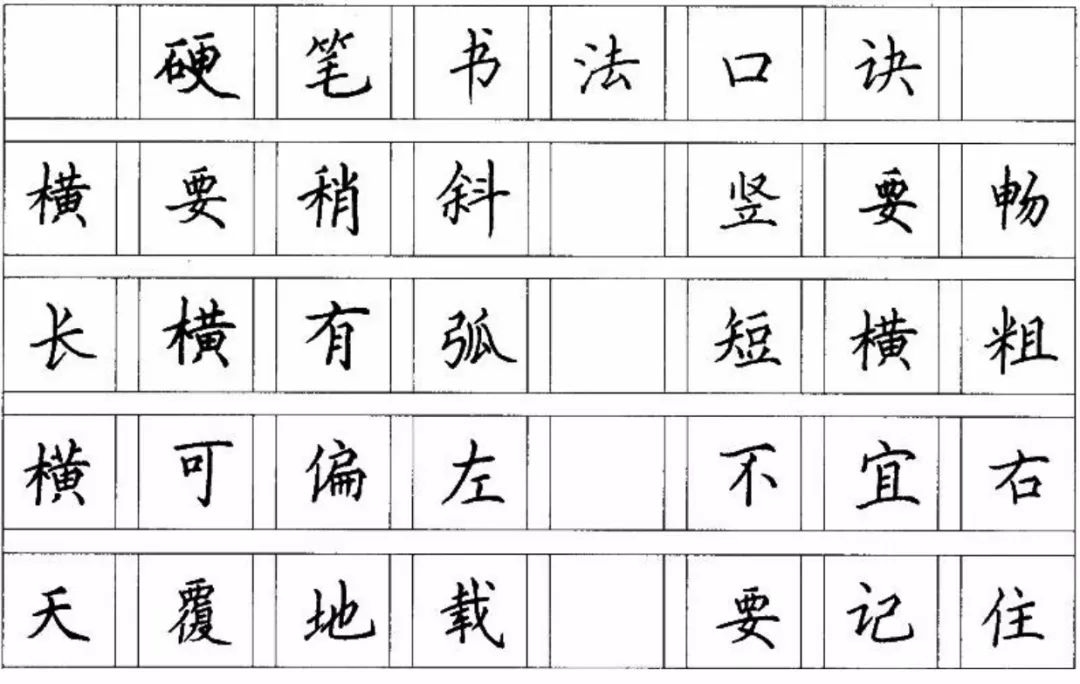 硬笔书法口诀
横要稍斜 竖要畅
长横有弧 短横粗
横可偏左 不宜右
天覆地载 要记住